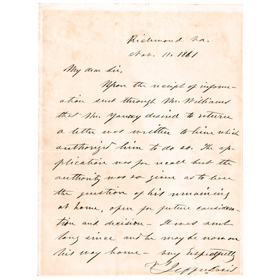 Richmond Va.
Nov. 11. 1861
My dear Sir,
Upon the receipt of inform-
ation sent through Mr. Williams
that Mr. Yancey desired to return
a letter was written to him which
authorized him to do so. The ap-
plication was for recall but the
authority was so given as to leave
the question of his remaining
at home, open for future considera-
tion and decision - It was sent
long since and he may be now on
his way home - very respectfully
Jeffn Davis